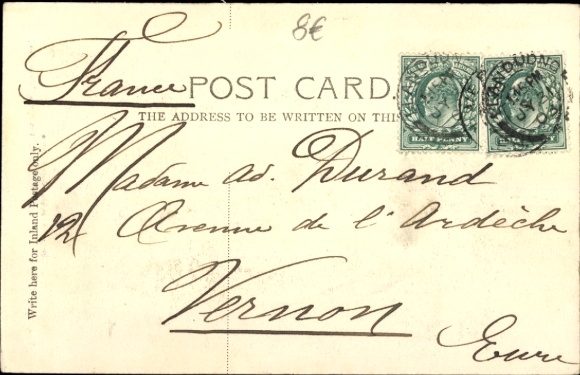 8€
France
POST CARD.
THE ADDRESS TO BE WRITTEN ON THIS
HALF PENNY
HALF
Write here for Inland Postage only.
Madame Ad. Durand
12 Avenue de l'Ardèche
Vernon
Eure